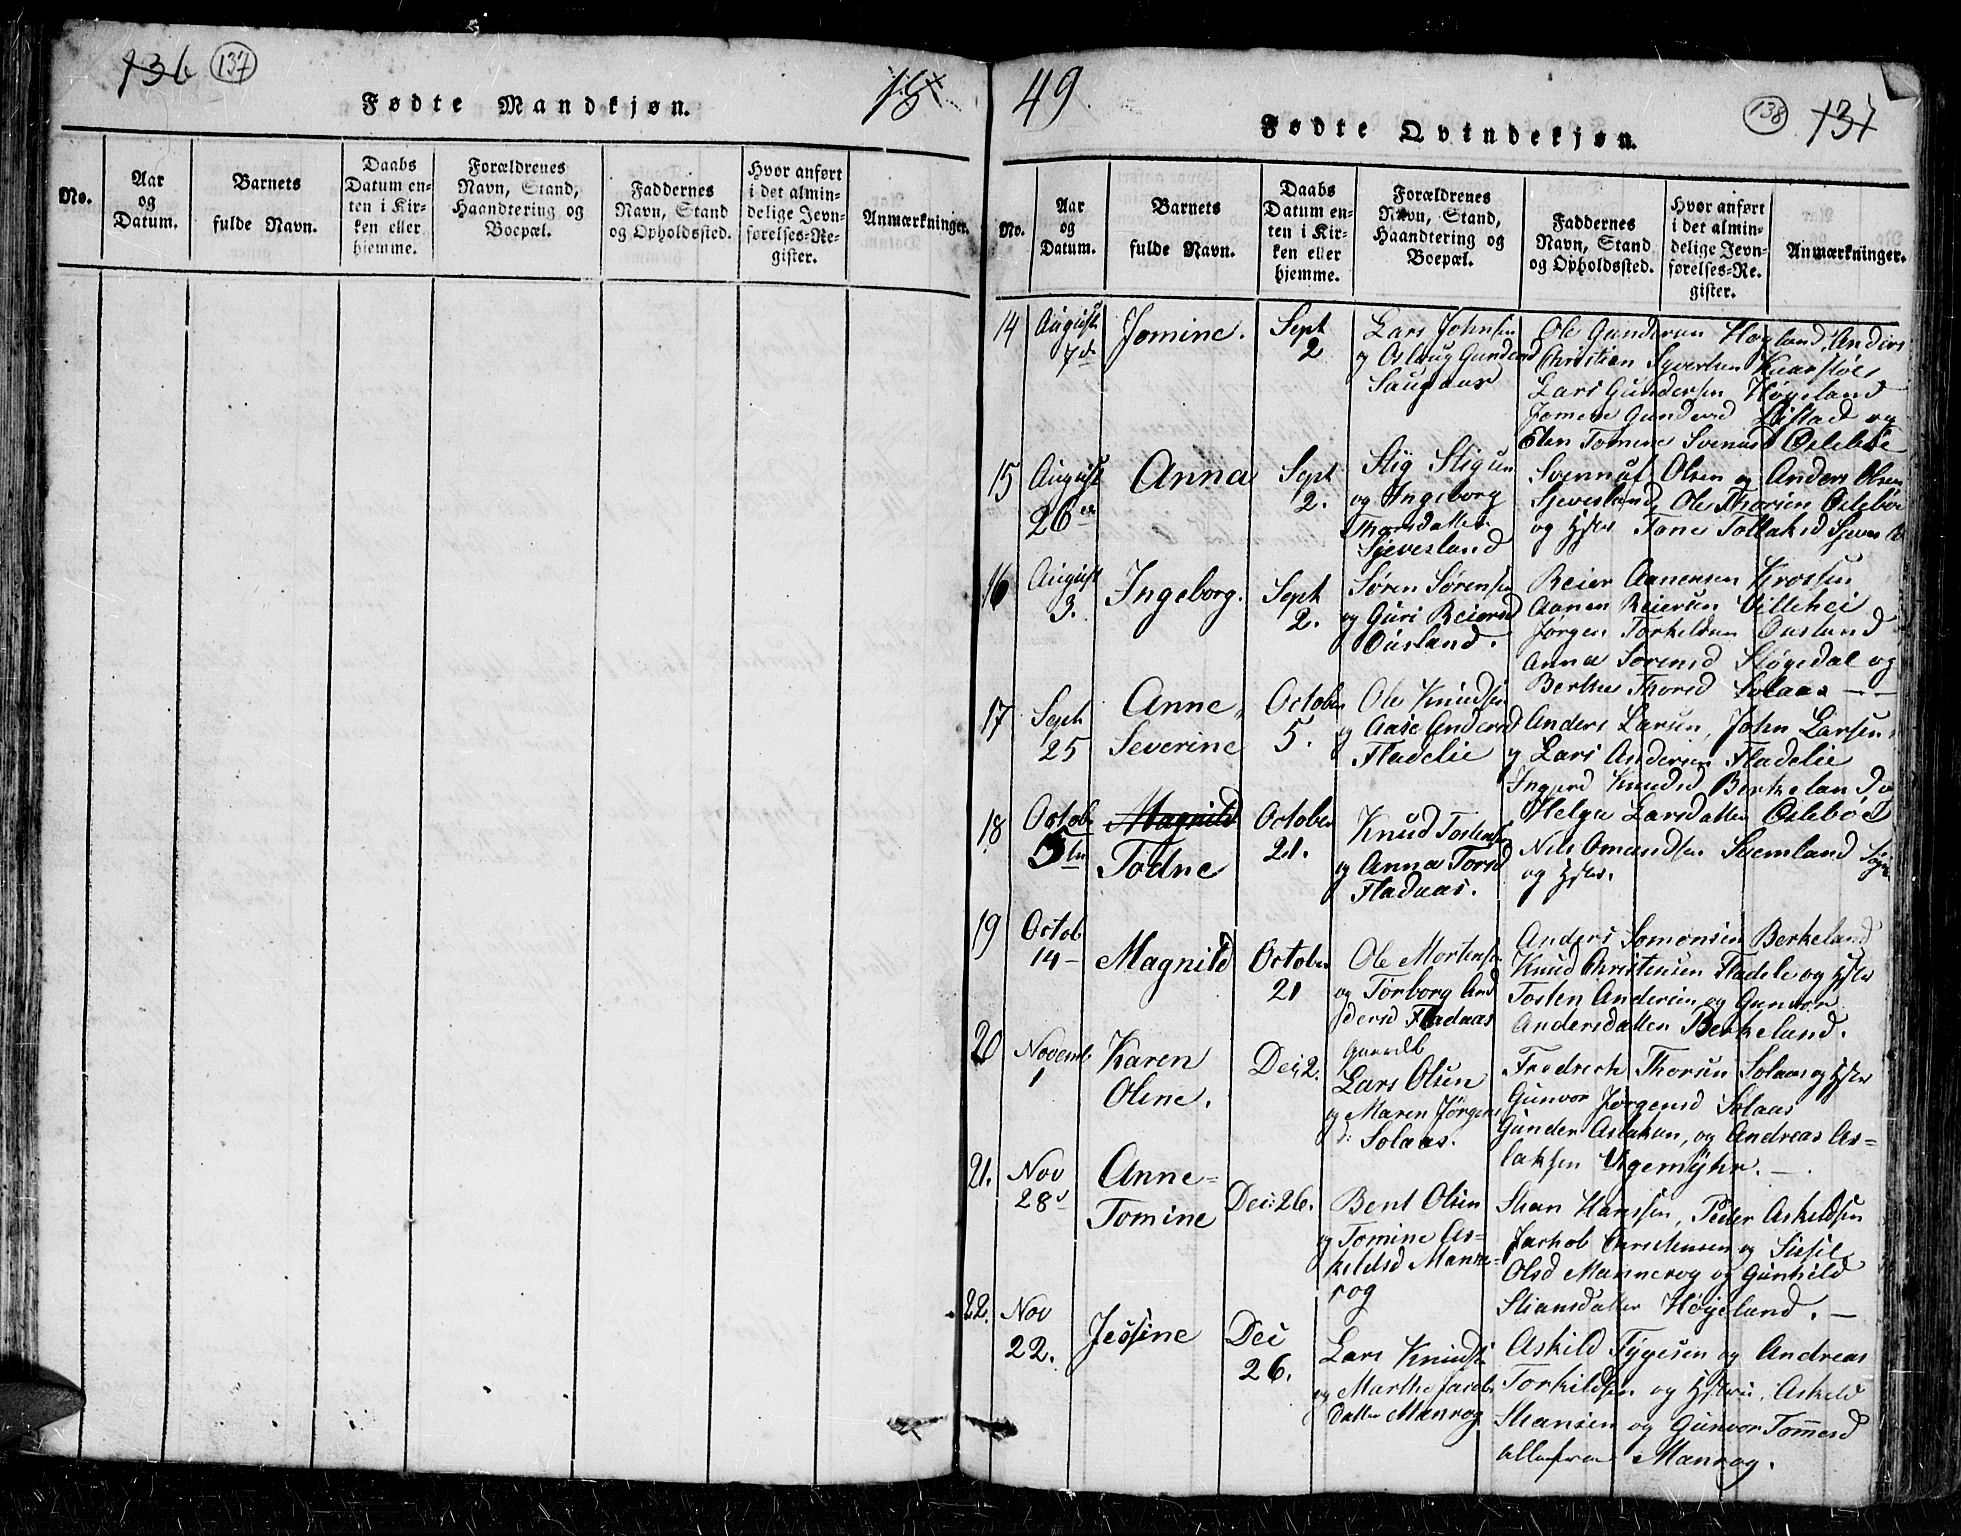 136 137
Fødte Mandkjøn.
No.
Aar
og
Datum.
Barnets
fulde Navn.
Daabs
Datum en-
ten i Kir-
ken eller
hjemme.
Forældrenes
Navn, Stand,
Haandtering og
Boepæl.
Faddernes
Navn, Stand
og Opholdssted.
Hvor anført
i det almin-
delige Jevn-
førelses-Re-
gister.
Anmærkninger.
49
138 137
Fødte Qvindekjøn.
No.
Aar
og
Datum.
Barnets
fulde Navn.
Daabs
Datum en-
ten i Kir-
ken eller
hjemme.
Forældrenes
Navn, Stand,
Haandtering og
Boepæl.
Faddernes
Navn, Stand
og Opholdssted.
Hvor anført
i det almin-
delige Jevn-
førelses-Re-
gister.
Anmærkninger.
14
August
7de
Jomine.
Sept
2
Lars Johnsen
og Oslaug Gundersd
Saugaas
Ole Gundersen Høgland, Anders
Christian Syvertsen Kaarstøl
Lars Gundersen Høgeland
Jomene Gundersd og
Elen Tomine Svennsd Oslebøe
15
August
26de
Anna
Sept
2.
Stig Stigsen
og Ingeborg
Thorsdatter
Sjevesland
Svennuf Olsen og Anders Olsen
Sjevesland, Ole Thorsen Oslebøe
og Hstes Tone Tollaksd
16
August
3.
Ingeborg.
Sept
2.
Søren Sørensen
og Guri Reiersd
Ousland.
Reier Aanensen Krossen
Aanen Reiersen Lillehei
Jørgen Torkelsen Ousland
Anna Sorensd Støgedal og
Berthe Thorsd Solaas — —
17
Sept
25
Anne
Severine
October
5.
Ole Knudsen
og Aase Andersd
Fladelie
Anders Larsen, John Larsen
og Lars Andersen Fladelie
Ingerd Knudsd Berkeland og
Helga Larsdatter Oslebøe
18
Octob
5te
Magnild
Todne
October
21.
Knud Tostensen
og Anna Torsd
Fladaas.
Nils Omundsen
og Hstes.
19
Octob
14—
Magnild
October
21
Ole Mortensen
og Torborg And
dersd Fladaas
Anders Somonsen Berkeland
Knud Christensen Fladelie og Hstes
Tosten Andersen og Gunvor
Andersdatter Berkeland.
20
Novemb
1
Karen
Oline.
Dec: 2.
Lars Olsen
og Maren Jørgens
d: Solaas.
Fredrich Thorsen Solaas og Hstes
Gunvor Jørgensd Solaas
Gunder Aslaksen, og Andreas As=
laksen Vigemyhr. —
21.
Nov
28d
Anne=
Tomine
Dec: 26.
Bent Olsen
og Tomine As=
kildsd Manne=
rog
Stian Hanssen, Peder Askildsen
Jachob Christensen og Sissel
Olsd Mannerog og Gunhild
Stiansdatter Høyeland. —
22.
Nov
22.
Jessine
Dec
26.
Lars Knudsen
og Marthe Jacobs
datter Manrog
Askild Tygesen og Andreas
Torkildsen og Hstru, Askild
Stiansen og Gunvor Tommesd
alle fra Manrog.